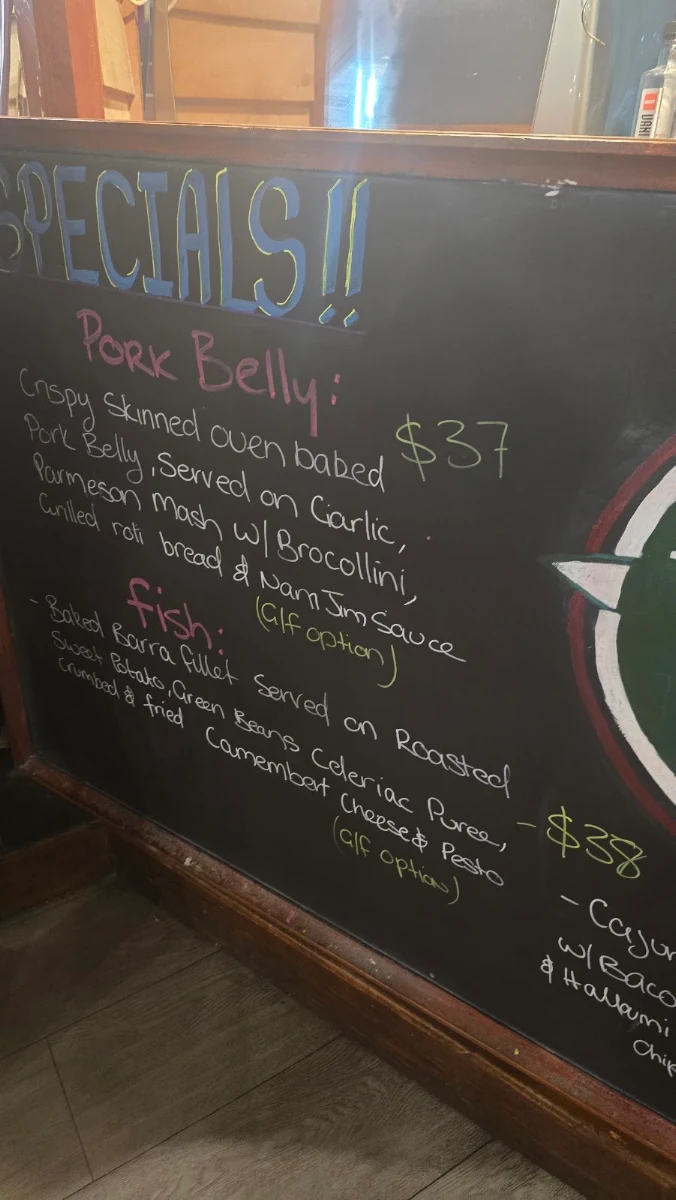 SPECIALS!!
Pork Belly:
Crispy Skinned oven baked $37
Pork Belly, Served on Garlic,
Parmesan Mash w/ Brocollini,
Grilled roti bread & Nam Jim Sauce
(G/f option)
fish:
- Baked Barra fillet Served on Roasted
Sweet Potato, Green Beans Celeriac Puree, - $38
Crumbed & fried Camembert Cheese & Pesto
(G/f option)
- Cajun
w/ Baco
& Halloumi